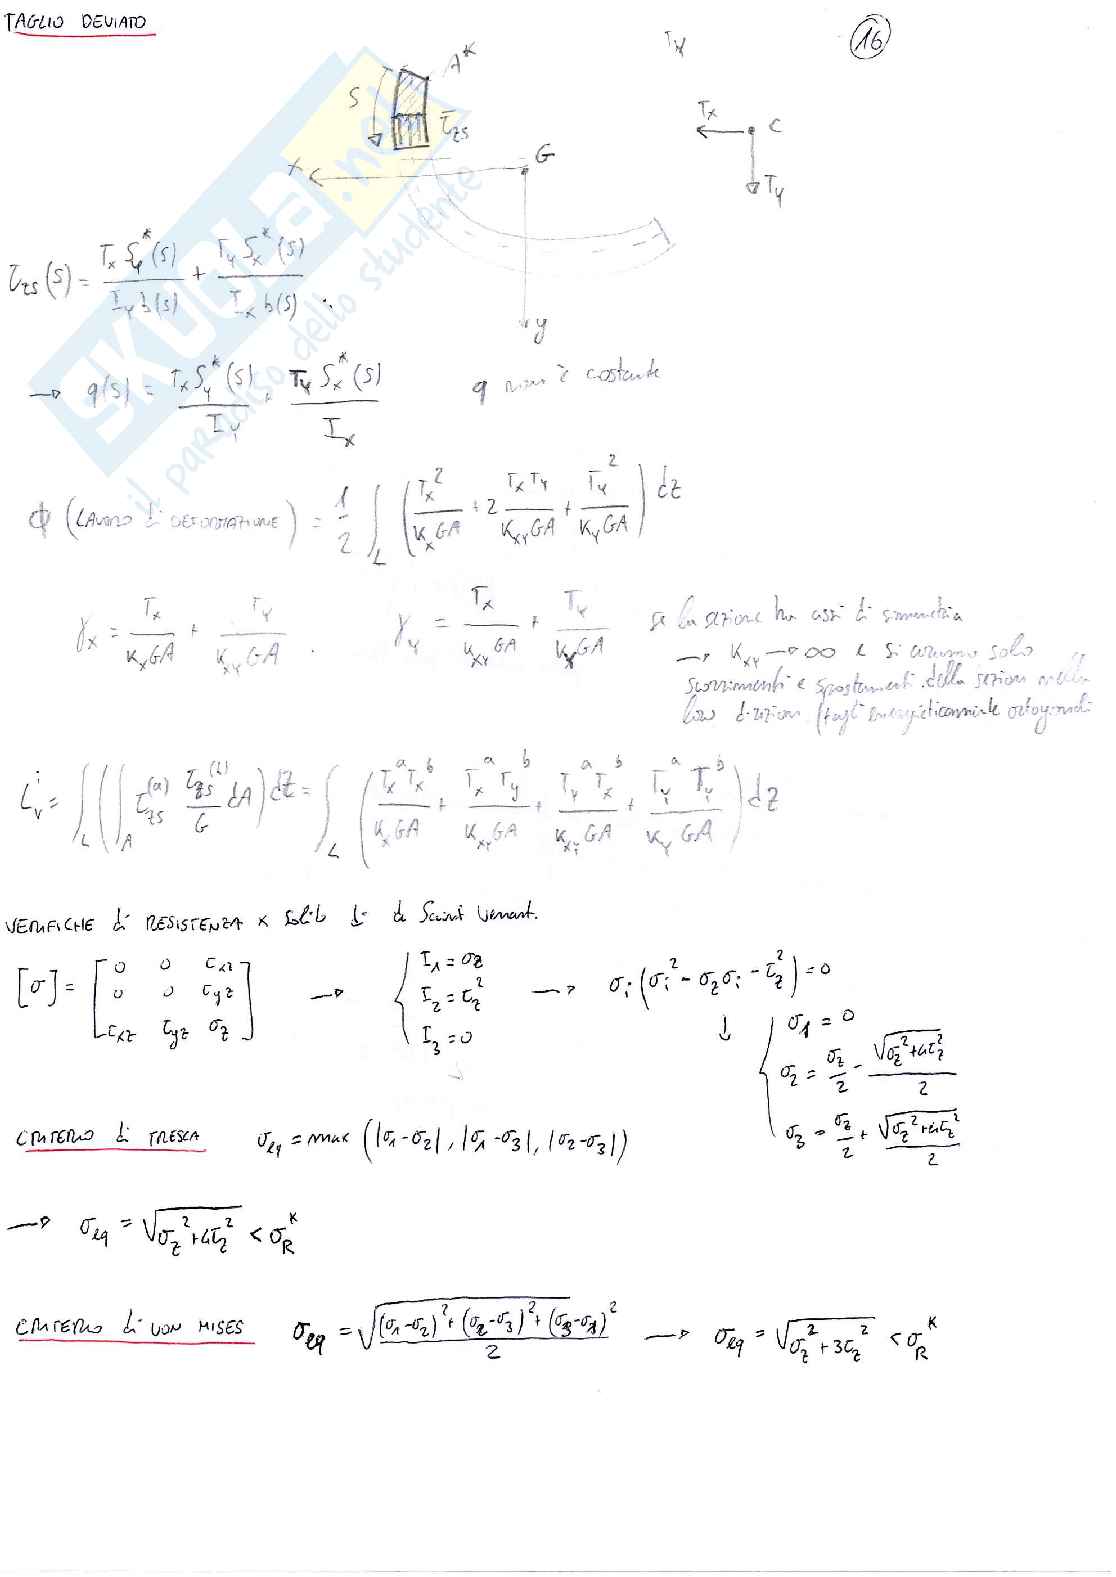 TAGLIO DEVIATO
16
T_y
A*
S
τ_zs
G
x
y
T_x
C
T_y
τ_zs(s) = T_x S_y*(s) / I_y b(s) + T_y S_x*(s) / I_x b(s)
→ q(s) = T_x S_y*(s) / I_y + T_y S_x*(s) / I_x q non è costante
Φ (LAVORO di DEFORMAZIONE) = 1/2 ∫_L (T_x² / K_x GA + 2 T_x T_y / K_xy GA + T_y² / K_y GA) dz
γ_x = T_x / K_x GA + T_y / K_xy GA . γ_y = T_x / K_xy GA + T_y / K_y GA se la sezione ha assi di simmetria
→ K_xy → ∞ e si avranno solo
scorrimenti e spostamenti della sezione nella
loro direzione (tagli energeticamente ortogonali
L_v^i = ∫_L (∫_A τ_zs^(a) τ_zs^(b) / G dA) dz = ∫_L (T_x^a T_x^b / K_x GA + T_x^a T_y^b / K_xy GA + T_y^a T_x^b / K_xy GA + T_y^a T_y^b / K_y GA) dz
VERIFICHE di RESISTENZA x solido di de Saint Venant.
[σ] = [0 0 τ_xz
0 0 τ_yz
τ_xz τ_yz σ_z]
→ { I_1 = σ_z
I_2 = τ_z²
I_3 = 0
→ σ_i (σ_i² - σ_z σ_i - τ_z²) = 0
↓ { σ_1 = 0
σ_2 = σ_z/2 - √(σ_z² + 4τ_z²) / 2
σ_3 = σ_z/2 + √(σ_z² + 4τ_z²) / 2
CRITERIO di TRESCA σ_eq = max (|σ_1 - σ_2|, |σ_1 - σ_3|, |σ_2 - σ_3|)
→ σ_eq = √(σ_z² + 4τ_z²) < σ_R^K
CRITERIO di VON MISES σ_eq = √(((σ_1 - σ_2)² + (σ_2 - σ_3)² + (σ_3 - σ_1)²) / 2) → σ_eq = √(σ_z² + 3τ_z²) < σ_R^K
SKUOLA.net
il paradiso dello studente